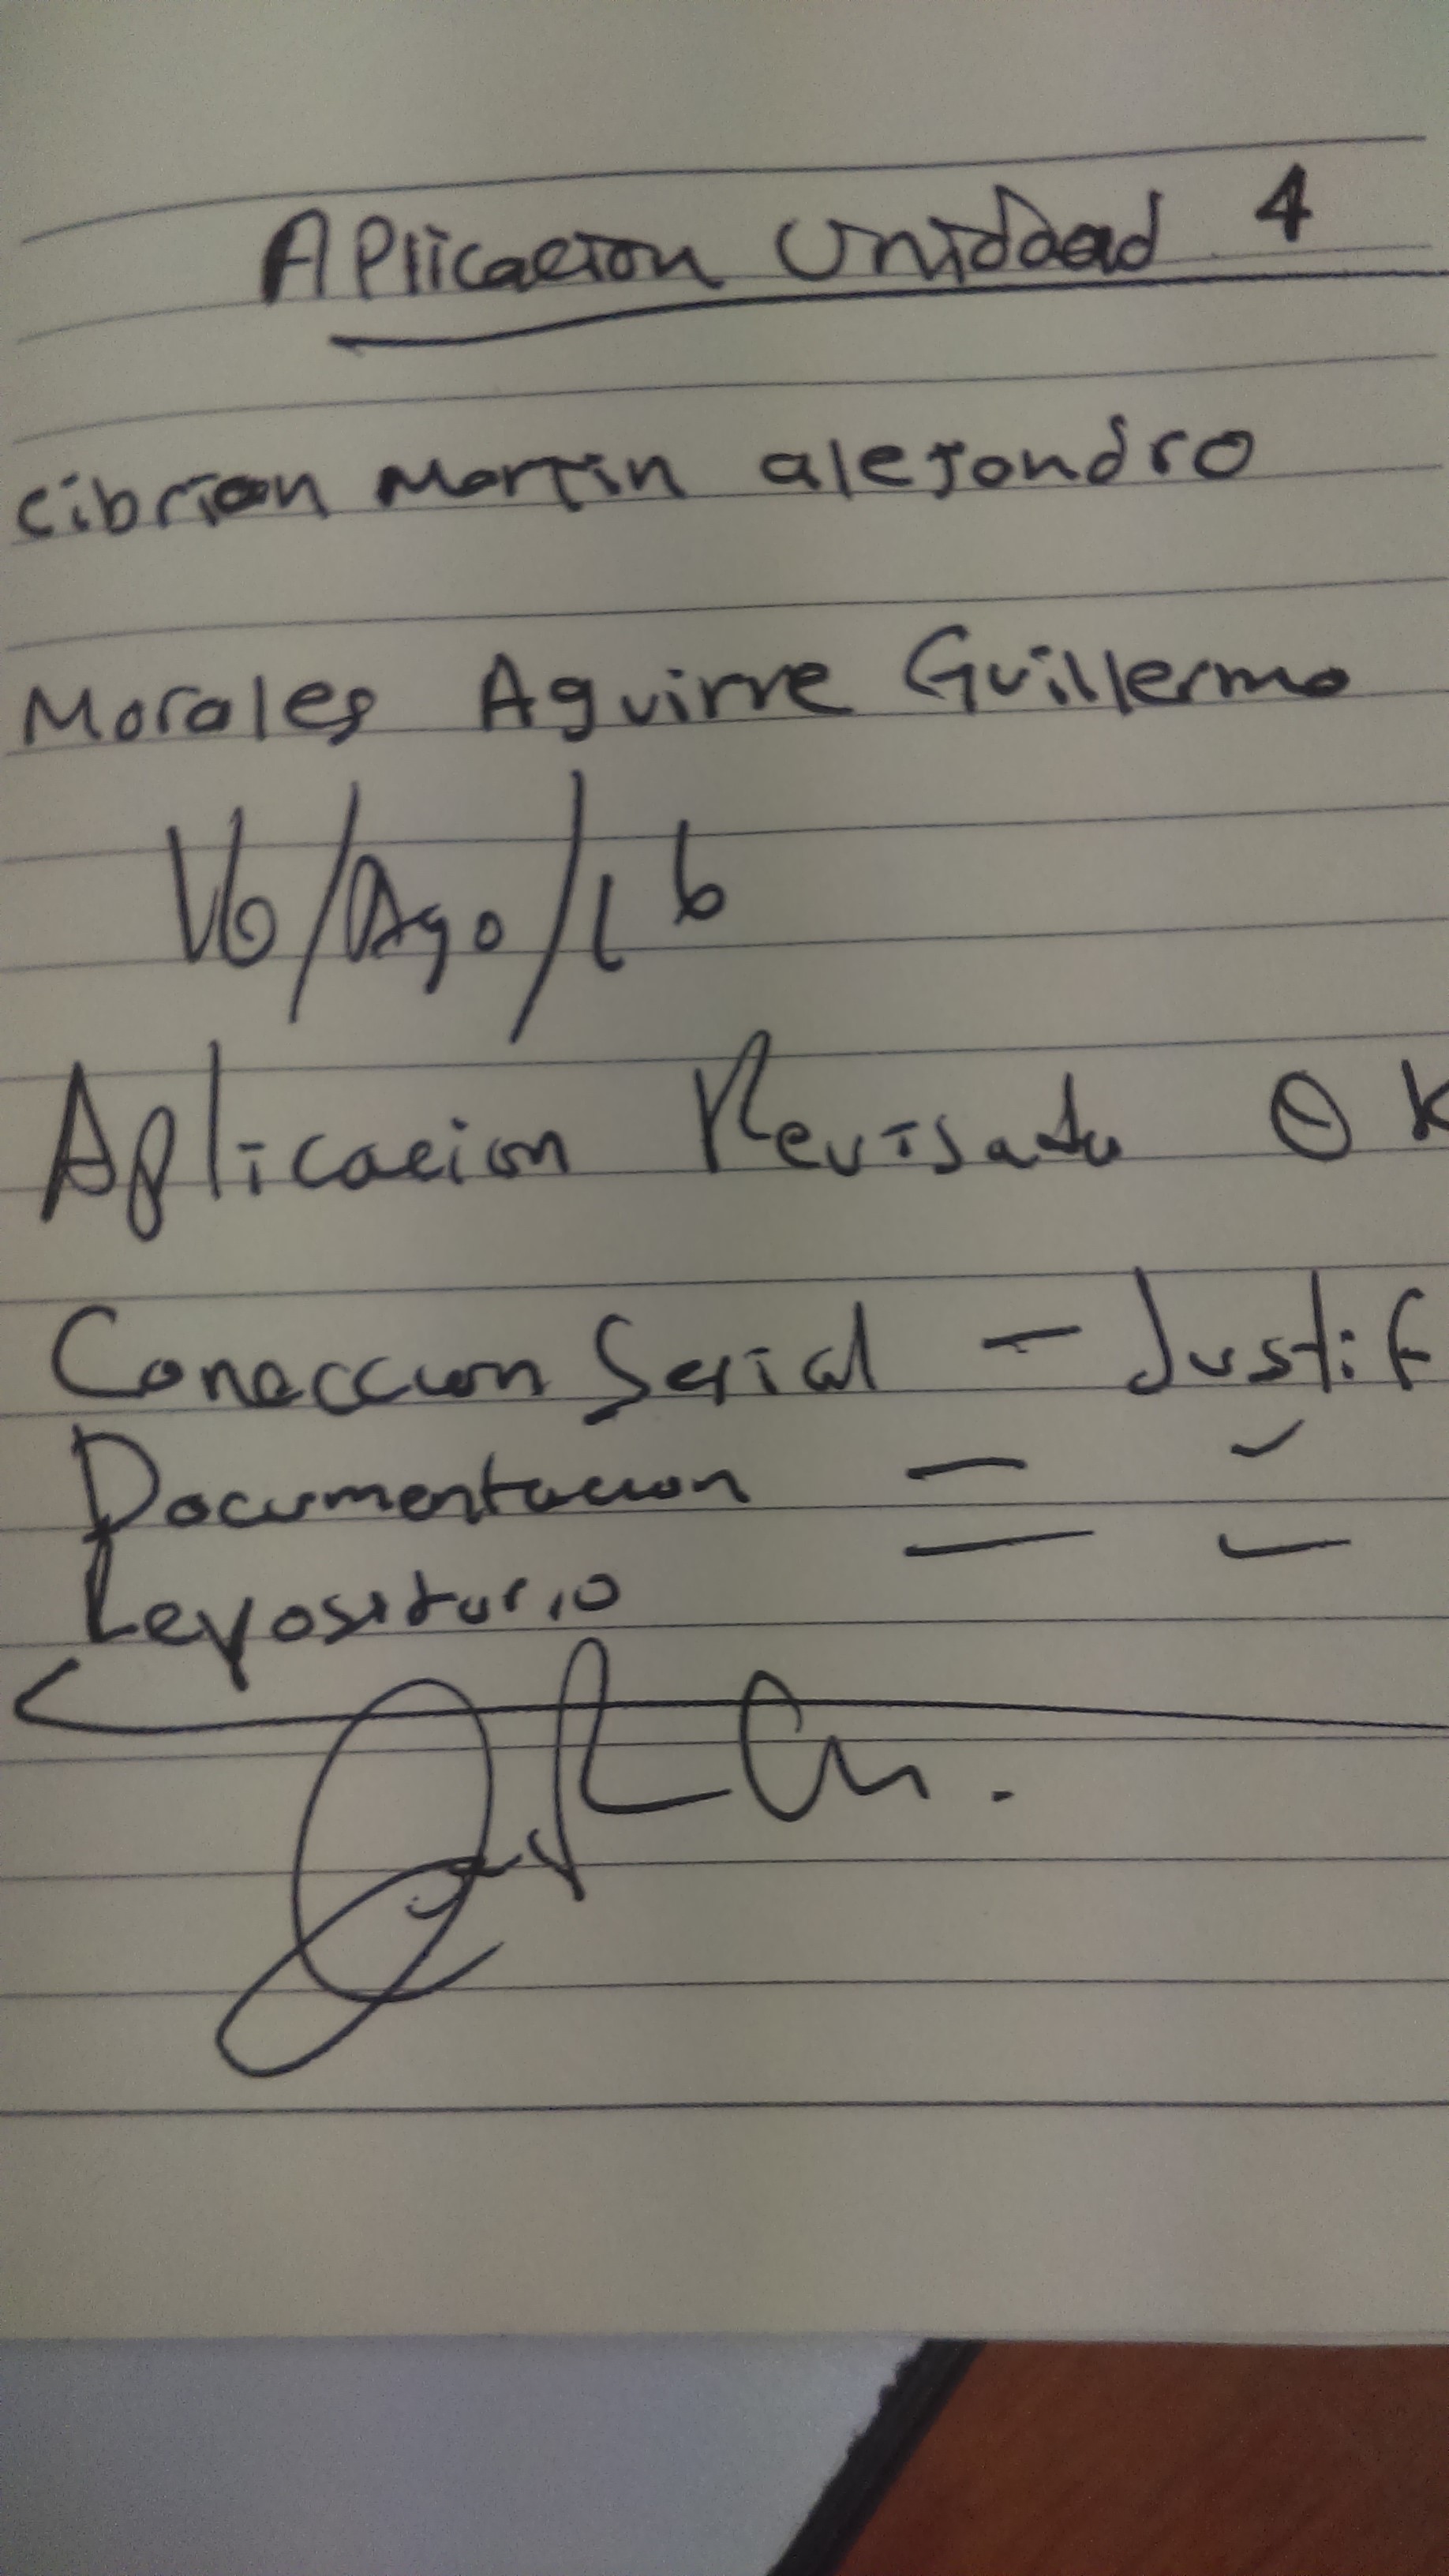 Aplicacion Unidad 4
Cibrian Martin alejandro
Morales Aguirre Guillermo
16/Ago/16
Aplicacion Revisada OK
Coneccion Serial - Justif
Documentacion - ✓
Repositorio - ✓